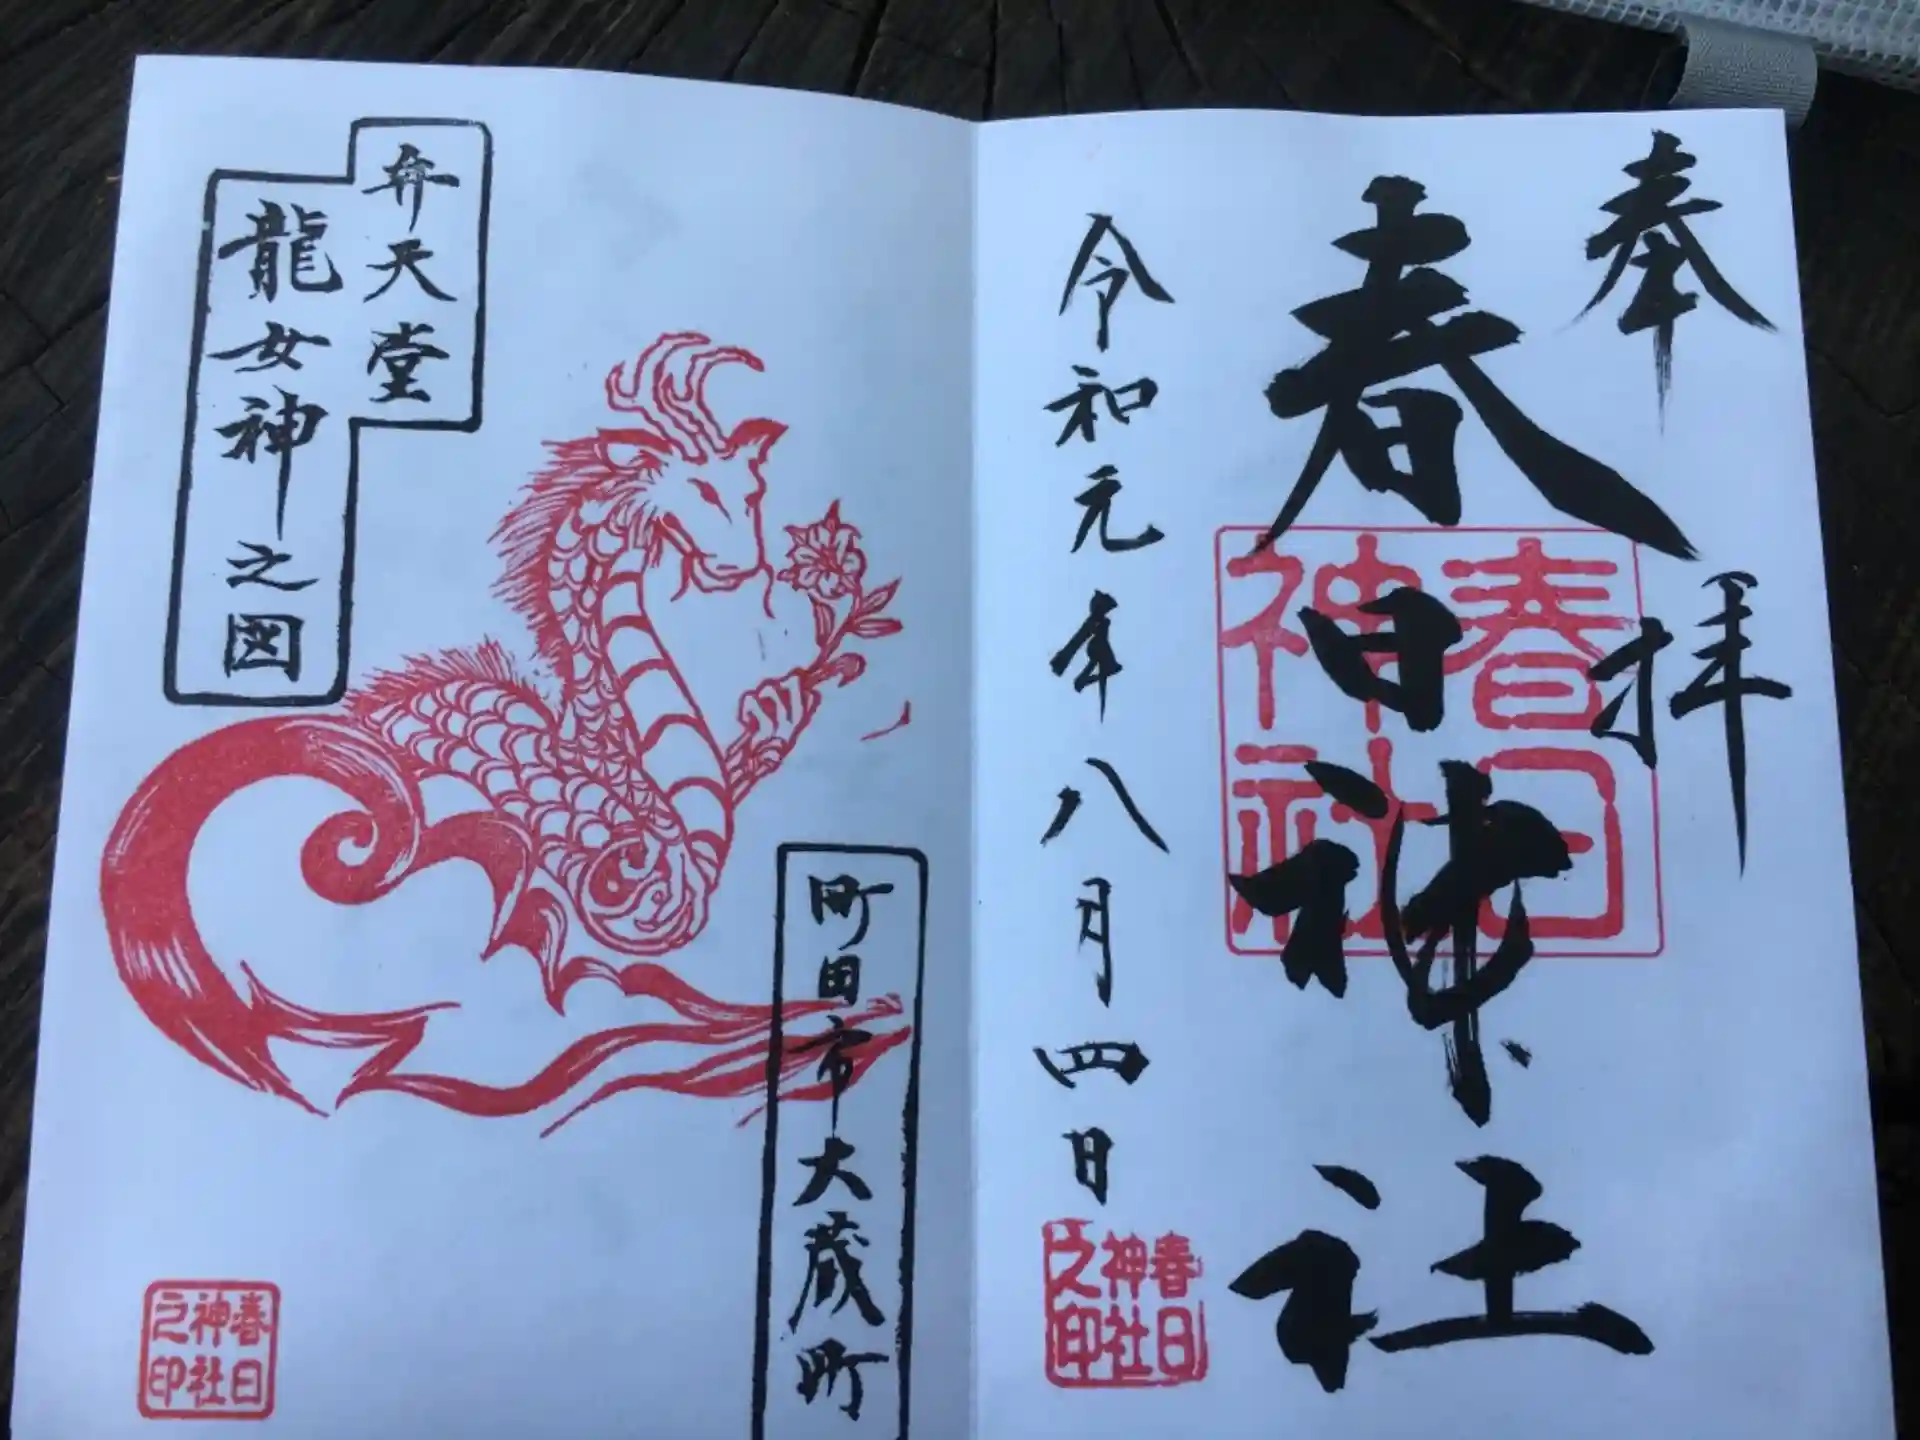 奉拝
春日神社
春日神社
令和元年八月四日
春日神社之印
弁天堂
龍女神之図
町田市大蔵町
春日神社之印